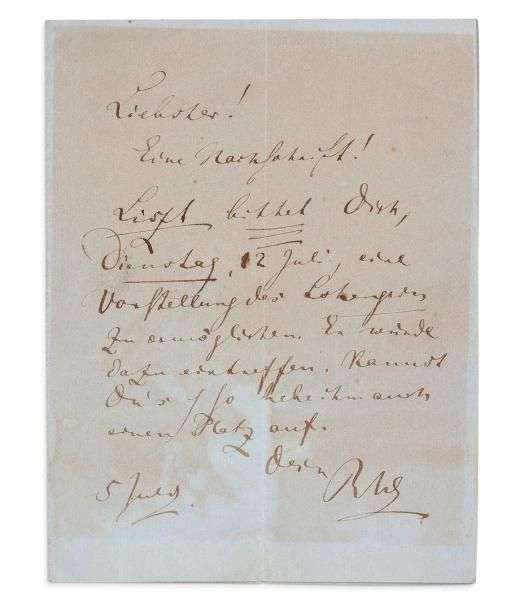 Liebster!
Eine Nachschrift!
Liszt bittet Dich,
Dienstag, 12 Juli, eine
Vorstellung des Lohengrin
zu ermöglichen. Er würde
dazu eintreffen. Kannst
Du's, so auch
einen Platz auf.
Dein RW
5 July